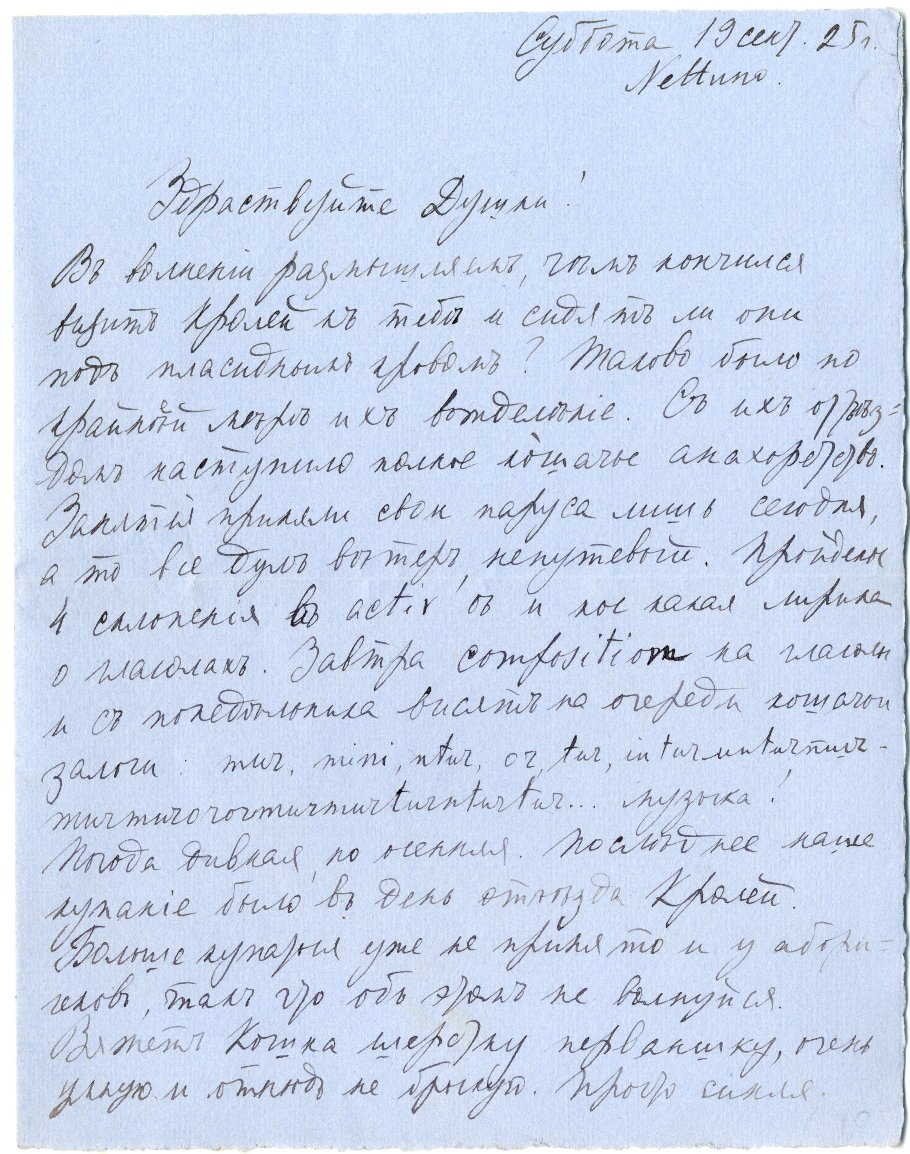 Суббота 19 сент. 25 г.
Nettuno.
Здраствуйте Душки!
Въ волненіи размышляемъ, чѣмъ кончился
визитъ Кролей къ тебѣ и сидятъ ли они
подъ пласидкинымъ кровомъ? Таково было по
крайней мѣрѣ ихъ вожделѣніе. Съ ихъ отъѣз-
домъ наступило полное кошачье анахоретство.
Занятія приняли свои паруса лишь сегодня,
а то все дулъ вѣтеръ непутевый. Пройдены
4 склоненія въ activ'ѣ и кое какая лирика
о глаголахъ. Завтра composition на глаголы
и съ понедѣльника висятъ на очереди кошачьи
залоги: mur, mini, ntur, or, tur,
... музыка!
Погода дивная, но осенняя. Послѣднее наше
купаніе было въ день отъѣзда Кролей.
Больше купаться уже не принято и у абори-
геновъ, такъ что объ этомъ не волнуйся.
Вяжетъ Кошка шерстку первашку, очень
умную и отнюдь не брыкую. Просто синяя.